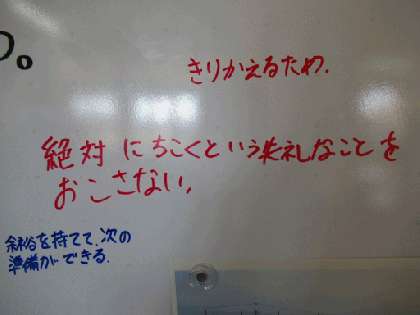 の。
きりかえるため.
絶対にちこくという失礼なことを
おこさない.
余裕を持てて、次の
準備ができる.